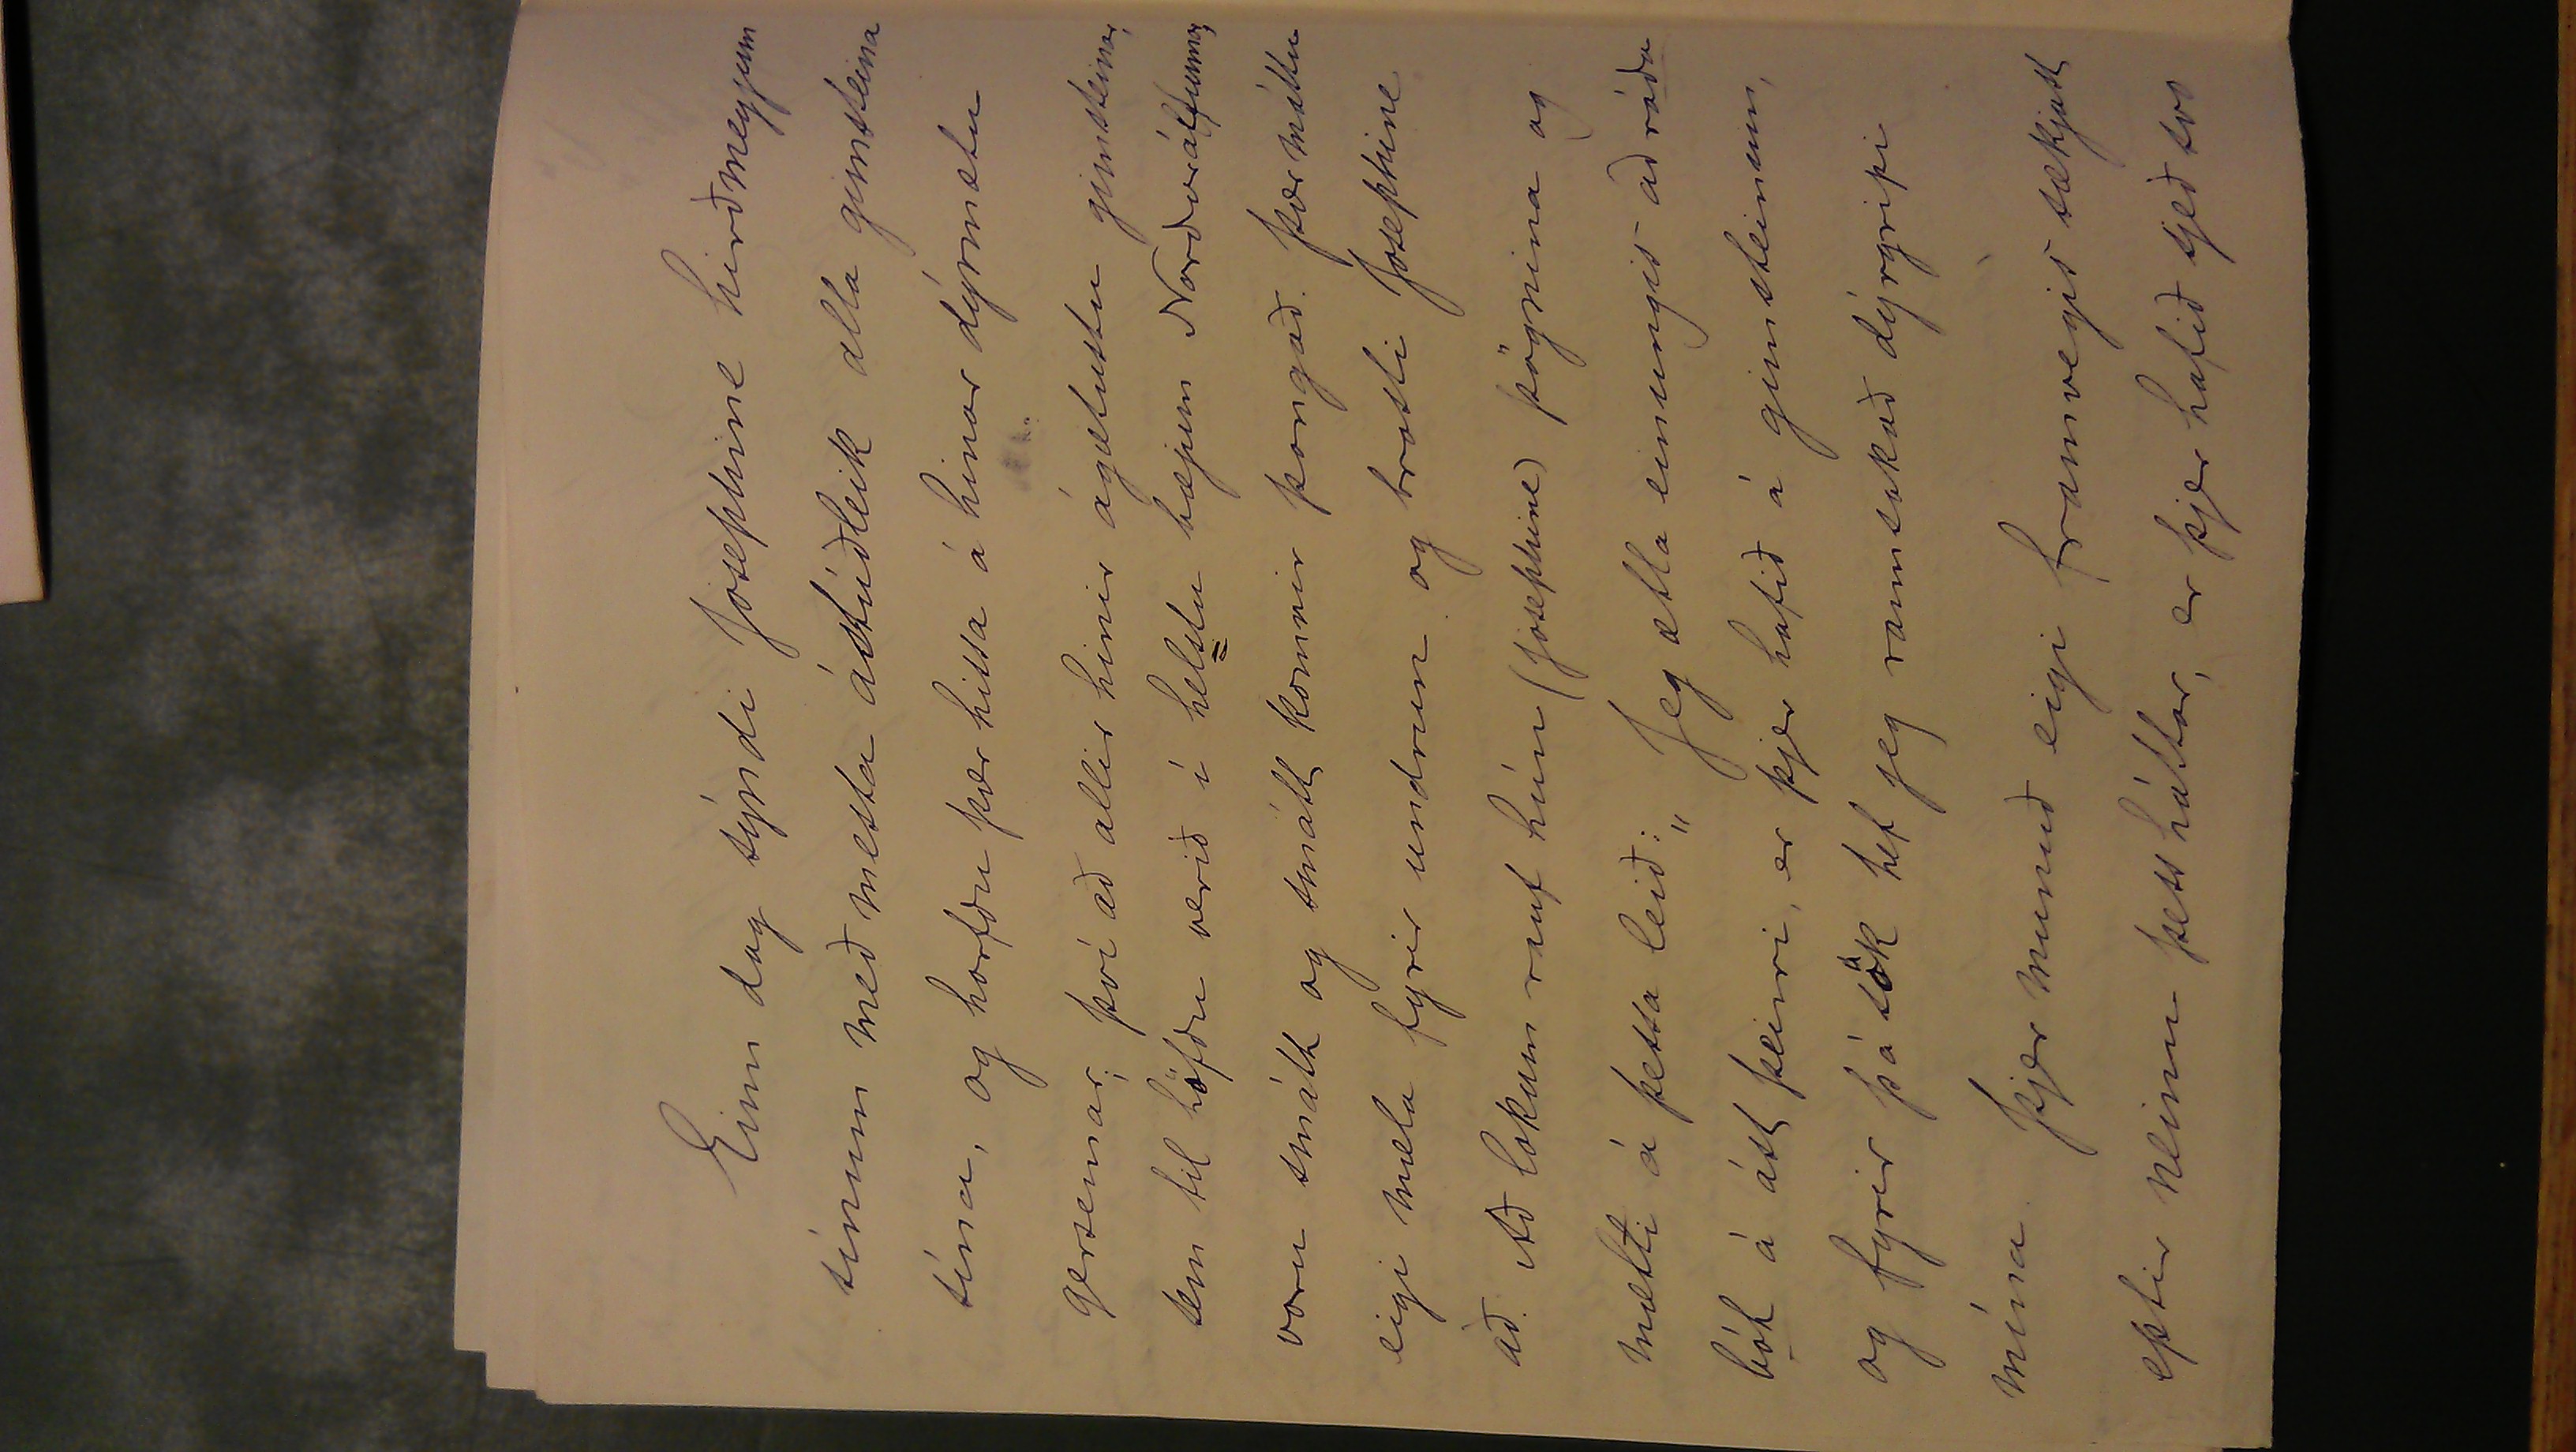 Einn dag sýndi Josephine hirðmeyjum
sínum með mesta ástúðleik alla gimsteina
sína, og horfðu þær hissa á hinar dýrmætu
gersemar; því að allir hinir ágætustu gimsteinar,
sem til höfðu verið í helstu bæjum Norðurálfunnar,
voru smátt og smátt komnir þangað. Þær máttu
eigi mæla fyrir undrun og brosti Josephine
að. Að lokum rauf hún (Josephine) þögnina og
mælti á þessa leið: „Jeg ætla einungis að ráða
bót á ást þeirri, er þjer hafið á gimsteinum,
og fyrir þá sök hef jeg rannsakað dýrgripi
mína. Þjer munuð eigi framvegis sækjast
eptir neinu þess háttar, er þjer hafið sjeð svo